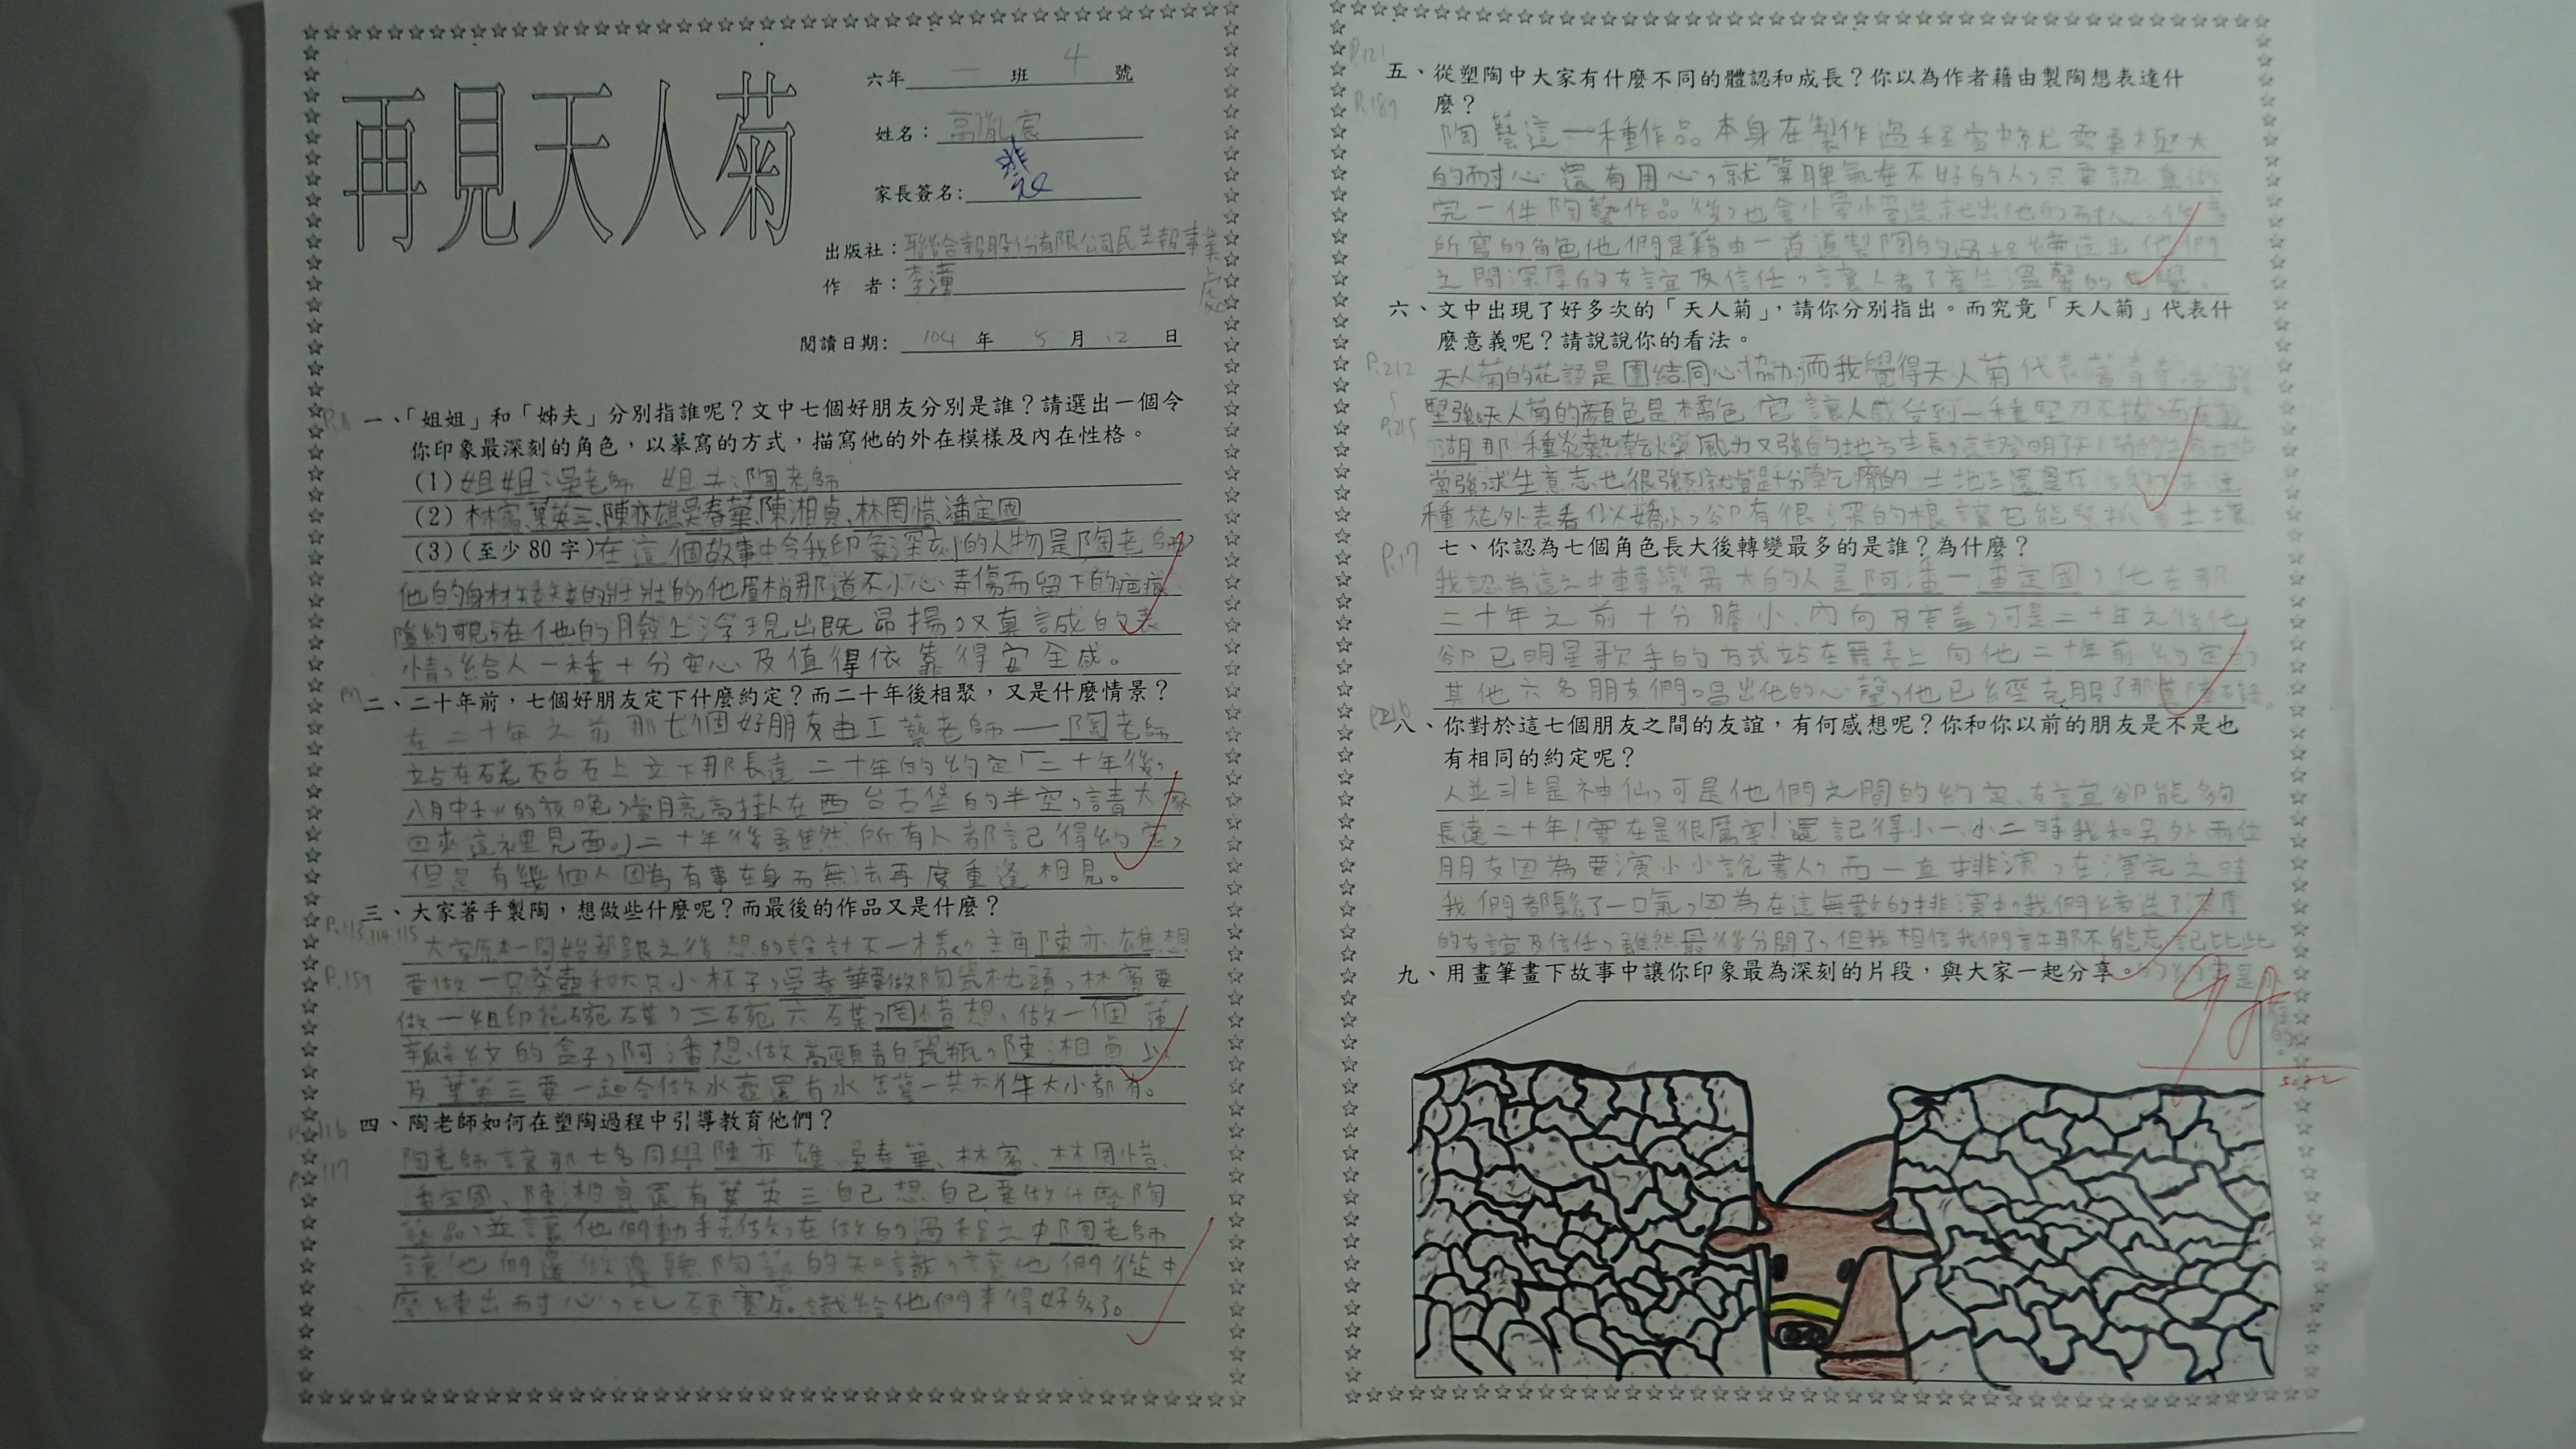 再見天人菊
六年 一 班 4 號
姓名：高
家長簽名：
出版社：聯合報股份有限公司民生報事業處
作 者：李潼
閱讀日期： 104 年 5 月 12 日
P.8
一、「姐姐」和「姊夫」分別指誰呢？文中七個好朋友分別是誰？請選出一個令
你印象最深刻的角色，以摹寫的方式，描寫他的外在模樣及內在性格。
(1) 姐姐：吳老師 姐夫：陶老師
(2) 林賓、葉英三、陳亦雄、吳春華、陳湘貞、林罔惜、潘定國
(3) (至少 80 字) 在這個故事中令我印象深刻的人物是陶老師，
他的身材矮矮的壯壯的，他眉梢那道不小心弄傷而留下的疤痕
隱約可見，在他的臉上浮現出既昂揚，又真誠的表
情，給人一種十分安心及值得依靠得安全感。
二、二十年前，七個好朋友定下什麼約定？而二十年後相聚，又是什麼情景？
在二十年之前那七個好朋友由工藝老師——陶老師
站在硓𥑮石上立下那長達二十年的約定「二十年後，
八月中秋的夜晚，當月亮高掛在西台古堡的半空，請大家
回來這裡見面。」二十年後雖然所有人都記得約定，
但是有幾個人因為有事在身而無法再度重逢相見。
三、大家著手製陶，想做些什麼呢？而最後的作品又是什麼？
P.113,114,115
大家原本一開始都跟之後想的設計不一樣，主角陳亦雄想
P.159
要做一只茶壺和六只小杯子，吳春華要做陶瓷枕頭，林賓要
做一組印花碗碟，三碗六碟，罔惜想做一個蓮
瓣紋的盒子，阿潘想做高頸青白瓷瓶，陳湘貞以
及葉英三要一起合做水壺還有水 一共六件大小都有。
四、陶老師如何在塑陶過程中引導教育他們？
P.116
P.117
陶老師讓那七名同學陳亦雄、吳春華、林賓、林罔惜、
潘定國、陳湘貞還有葉英三自己想自己要做什麼陶
藝品，並讓他們動手去做，在做的過程之中陶老師
讓他們邊做邊聽陶藝的知識，讓他們從中
磨練出耐心，比硬塞知識給他們來得好多了。
P.121
五、從塑陶中大家有什麼不同的體認和成長？你以為作者藉由製陶想表達什
麼？
P.189
陶藝這一種作品本身在製作過程當中就需要極大
的耐心還有用心，就算脾氣在不好的人，只要認真做
完一件陶藝作品後，也會慢慢造就出他的耐心，作者
所寫的角色他們是藉由一道道製陶的過程締造出他們
之間深厚的友誼及信任，讓人看了產生溫馨的感覺。
六、文中出現了好多次的「天人菊」，請你分別指出。而究竟「天人菊」代表什
麼意義呢？請說說你的看法。
P.212
P.215
天人菊的花語是團結、同心協力，而我覺得天人菊代表著青春活潑
堅強，天人菊的顏色是橘色，它讓人感受到一種堅忍不拔，而在澎
湖那種炎熱乾燥風力又強的地方生長，這證明了天人菊的生命力非
常強，求生意志也很強烈，就算是十分貧瘠的土地上還是在活的下去，這
種花外表看似嬌小，卻有很深的根讓它能緊抓著土壤
P.17
七、你認為七個角色長大後轉變最多的是誰？為什麼？
我認為這之中轉變最大的人是阿潘—潘定國，他在那
二十年之前十分膽小、內向及害羞，可是二十年之後他
卻已明星歌手的方式站在舞臺上向他二十年前約定的
其他六名朋友們，唱出他的心聲，他已經克服了那道障礙。
八、你對於這七個朋友之間的友誼，有何感想呢？你和你以前的朋友是不是也
有相同的約定呢？
人並非是神仙，可是他們之間的約定、友誼卻能夠
長達二十年！實在是很厲害！還記得小一小二時我和另外兩位
朋友因為要演小小說書人，而一直排演，在演完之時
我們都鬆了一口氣，因為在這無數的排演中，我們締造了深厚
的友誼及信任，雖然最後分開了，但我相信我們許那不能忘記彼此
的約定是
九、用畫筆畫下故事中讓你印象最為深刻的片段，與大家一起分享。
5.22